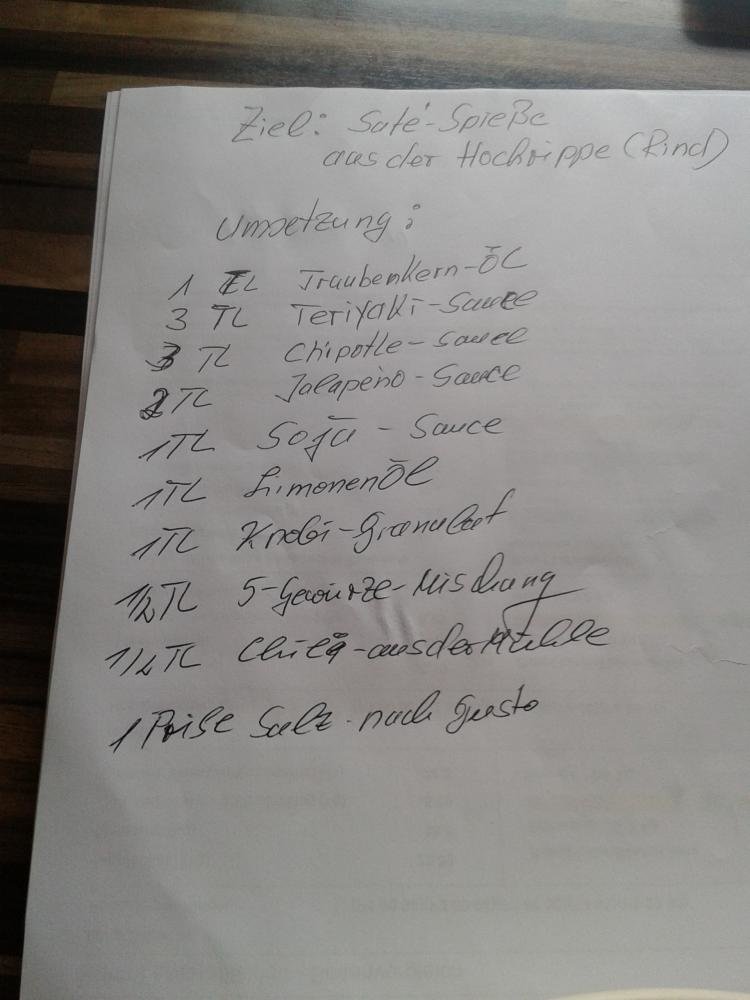 Ziel: Saté-Spieße
aus der Hochrippe (Rind)
Umsetzung:
1 EL Traubenkern-Öl
3 TL Teriyaki-Sauce
3 TL Chipotle-Sauce
2 TL Jalapeño-Sauce
1 TL Soja-Sauce
1 TL LimonenÖl
1 TL Knobi-Granulat
1/2 TL 5-Gewürze-Mischung
1/2 TL Chili-aus der Mühle
1 Prise Salz - nach Gusto